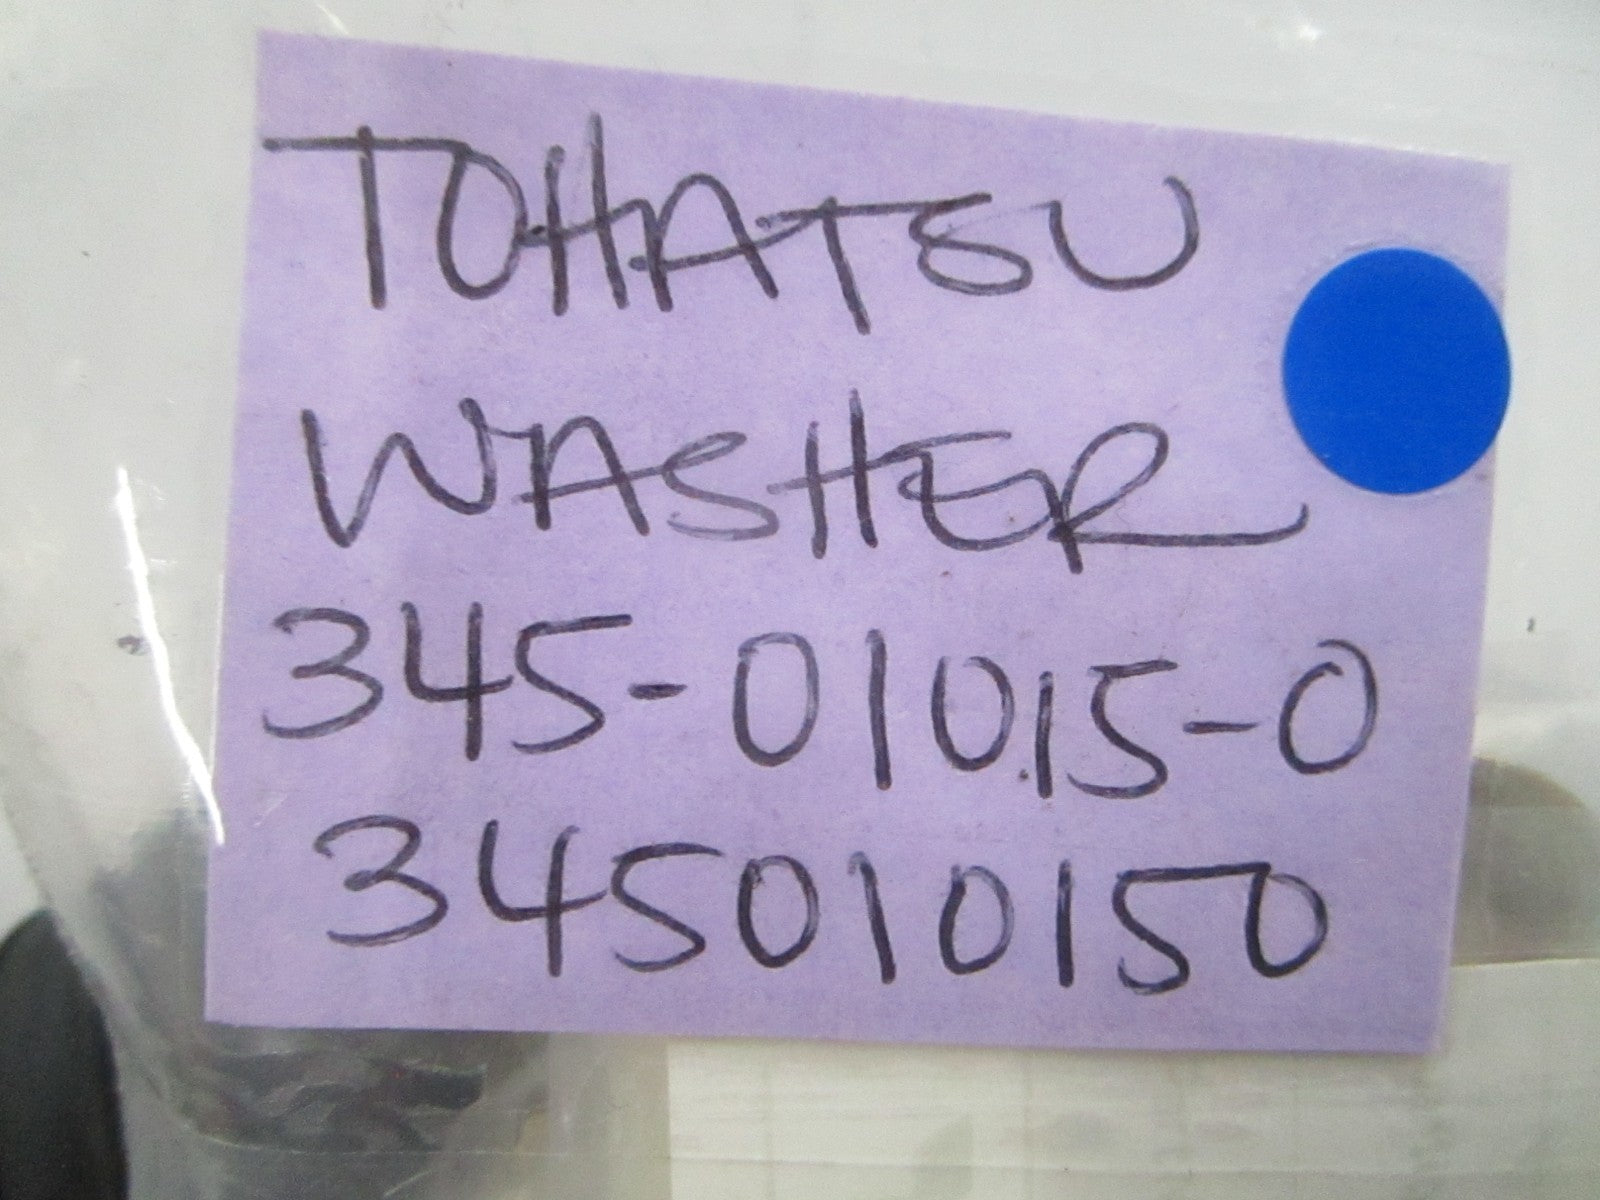 TOHATSU
WASHER
345-01015-0
345010150